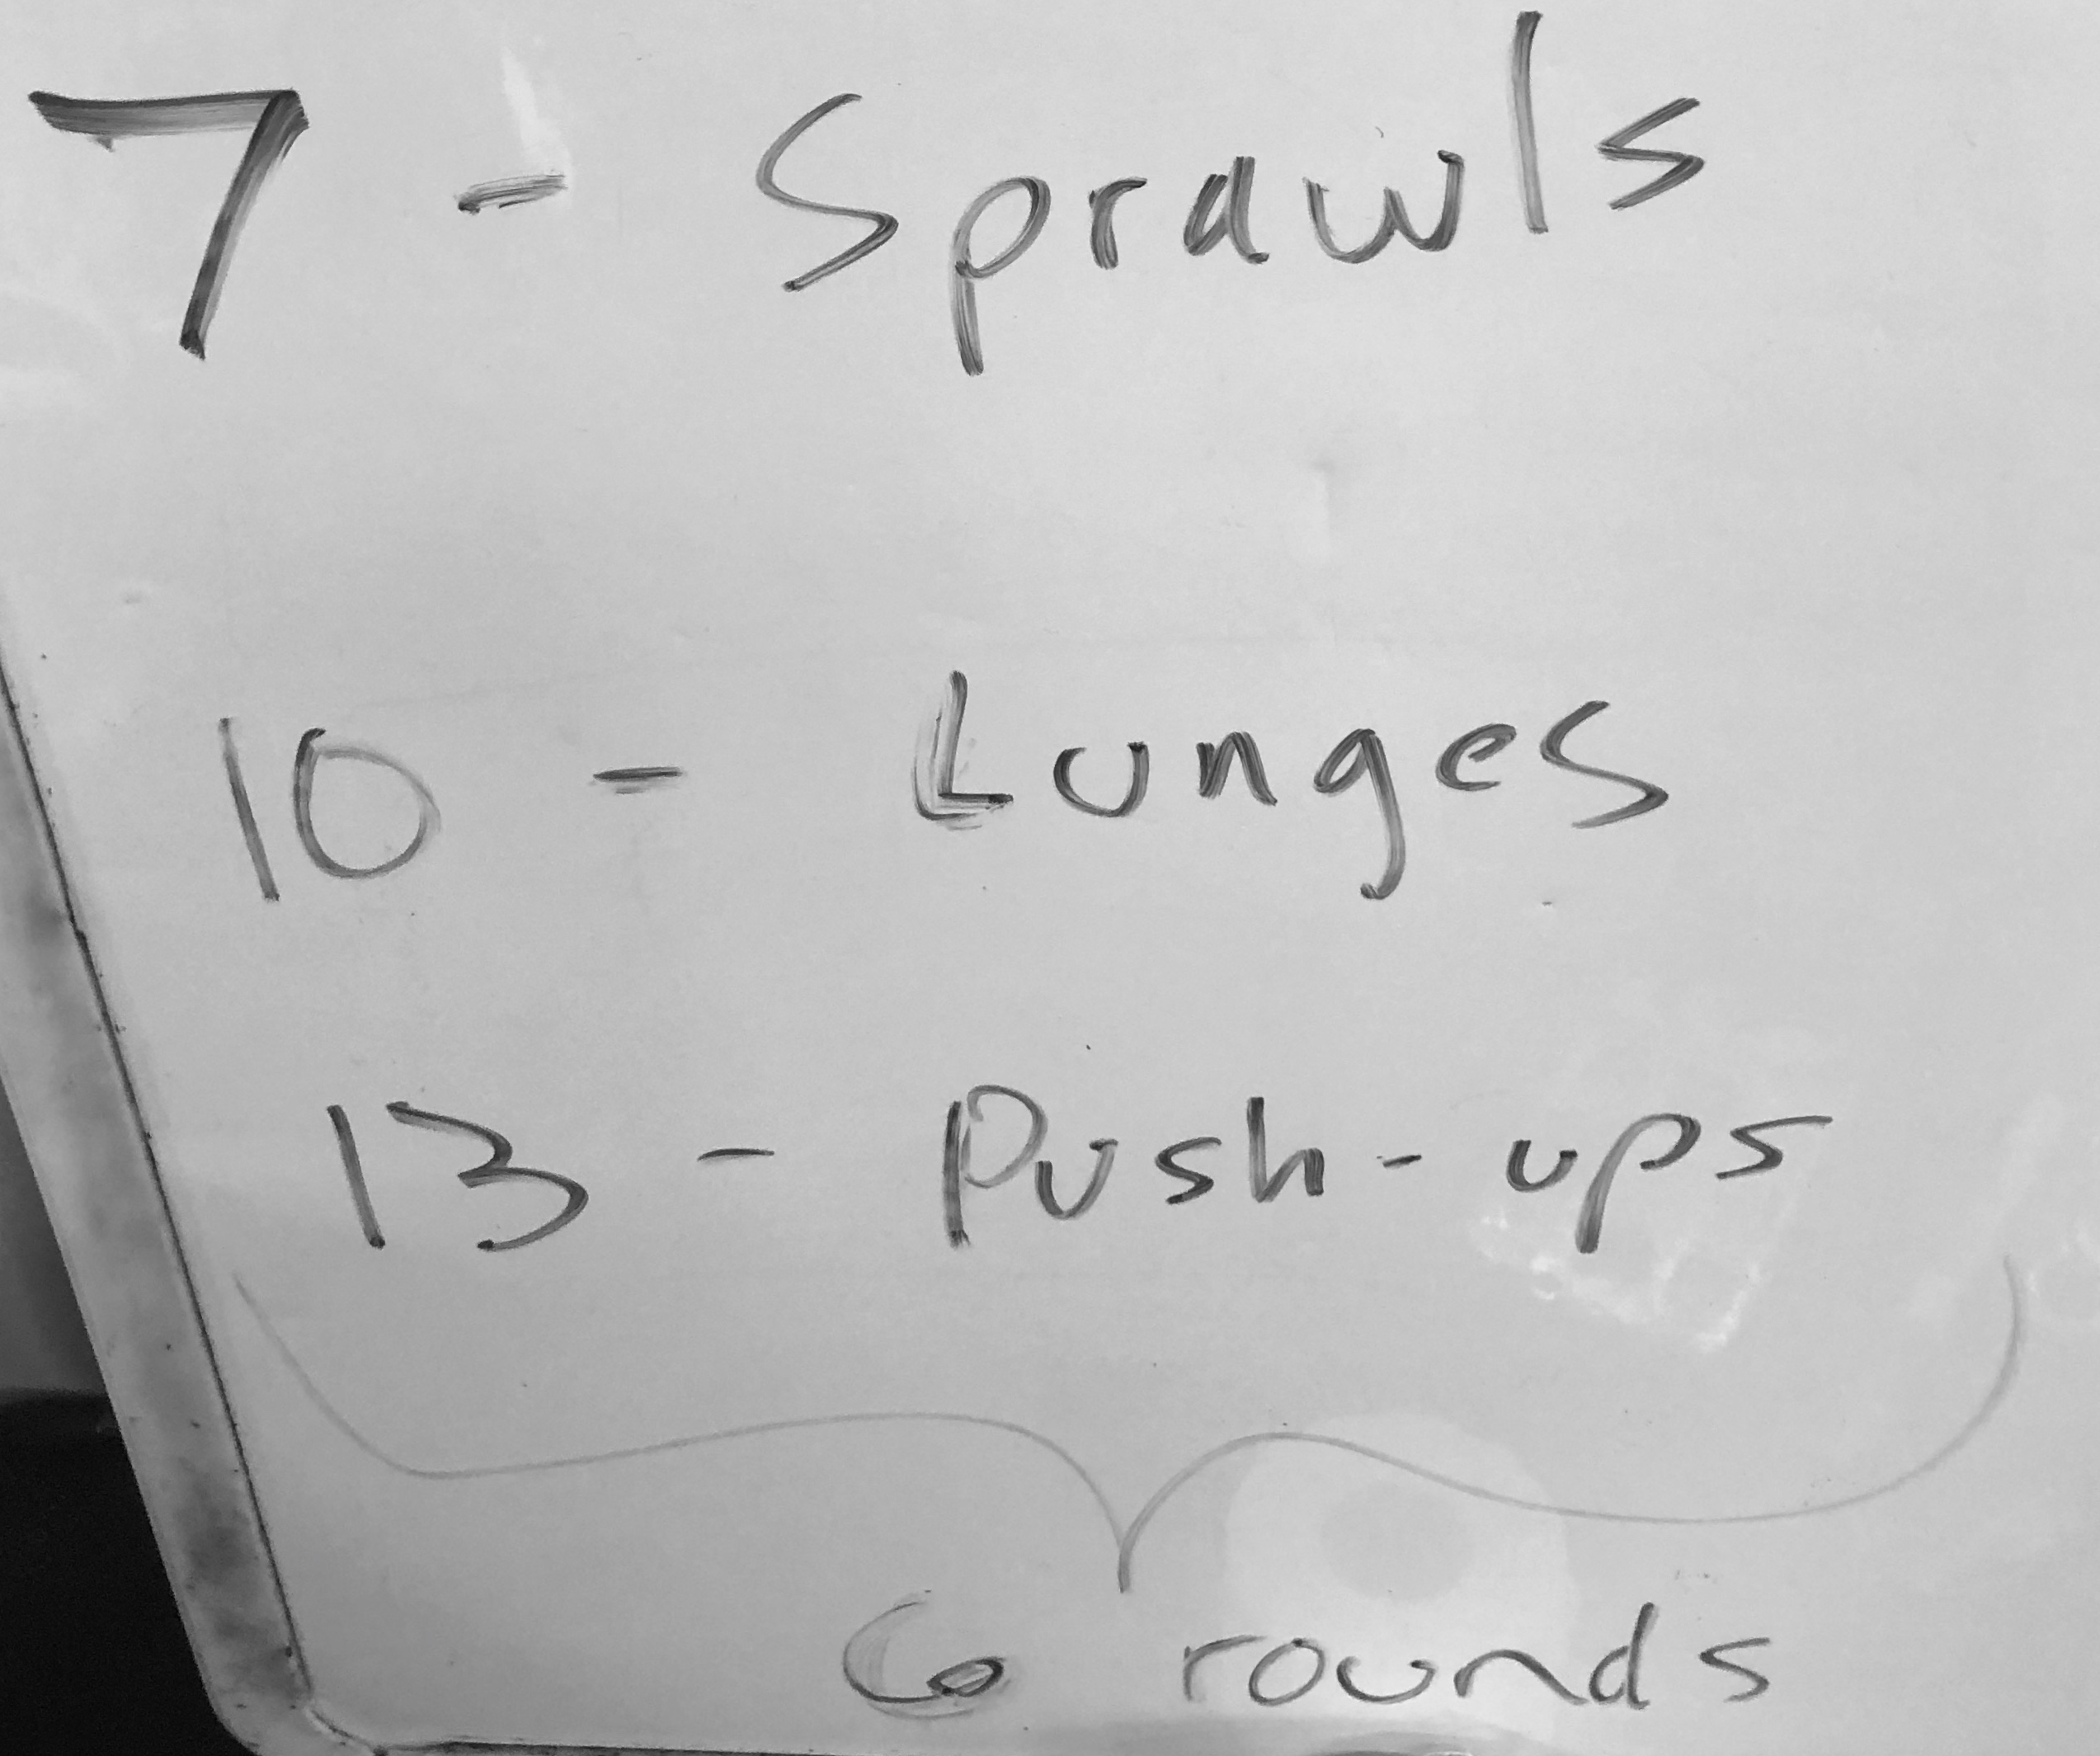 7 - Sprawls
10 - Lunges
13 - Push-ups
6 rounds